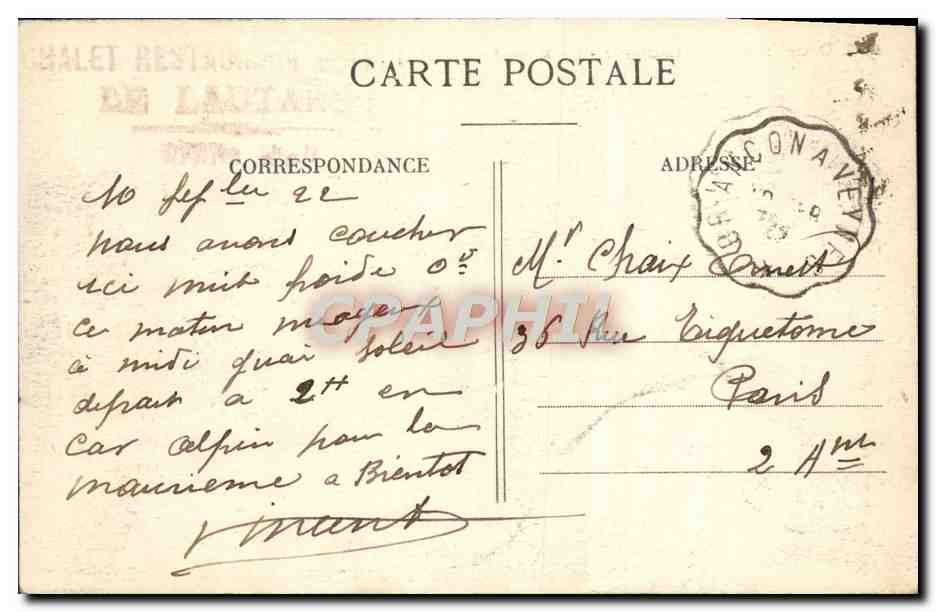 CHALET RESTAURANT
DE LAUTARET
CARTE POSTALE
CORRESPONDANCE
ADRESSE
BRIANÇON A VEYNES
10 7bre 22
nous avons coucher
ici nuit froide 0°
ce matin nuageux
à midi quai soleil
depart a 2H en
car alpin pour la
maurienne a Bientot
Vincent
Mr Chaix Ernest
36 Rue Tiquetonne
Paris
2 Arr
CPAPHIL